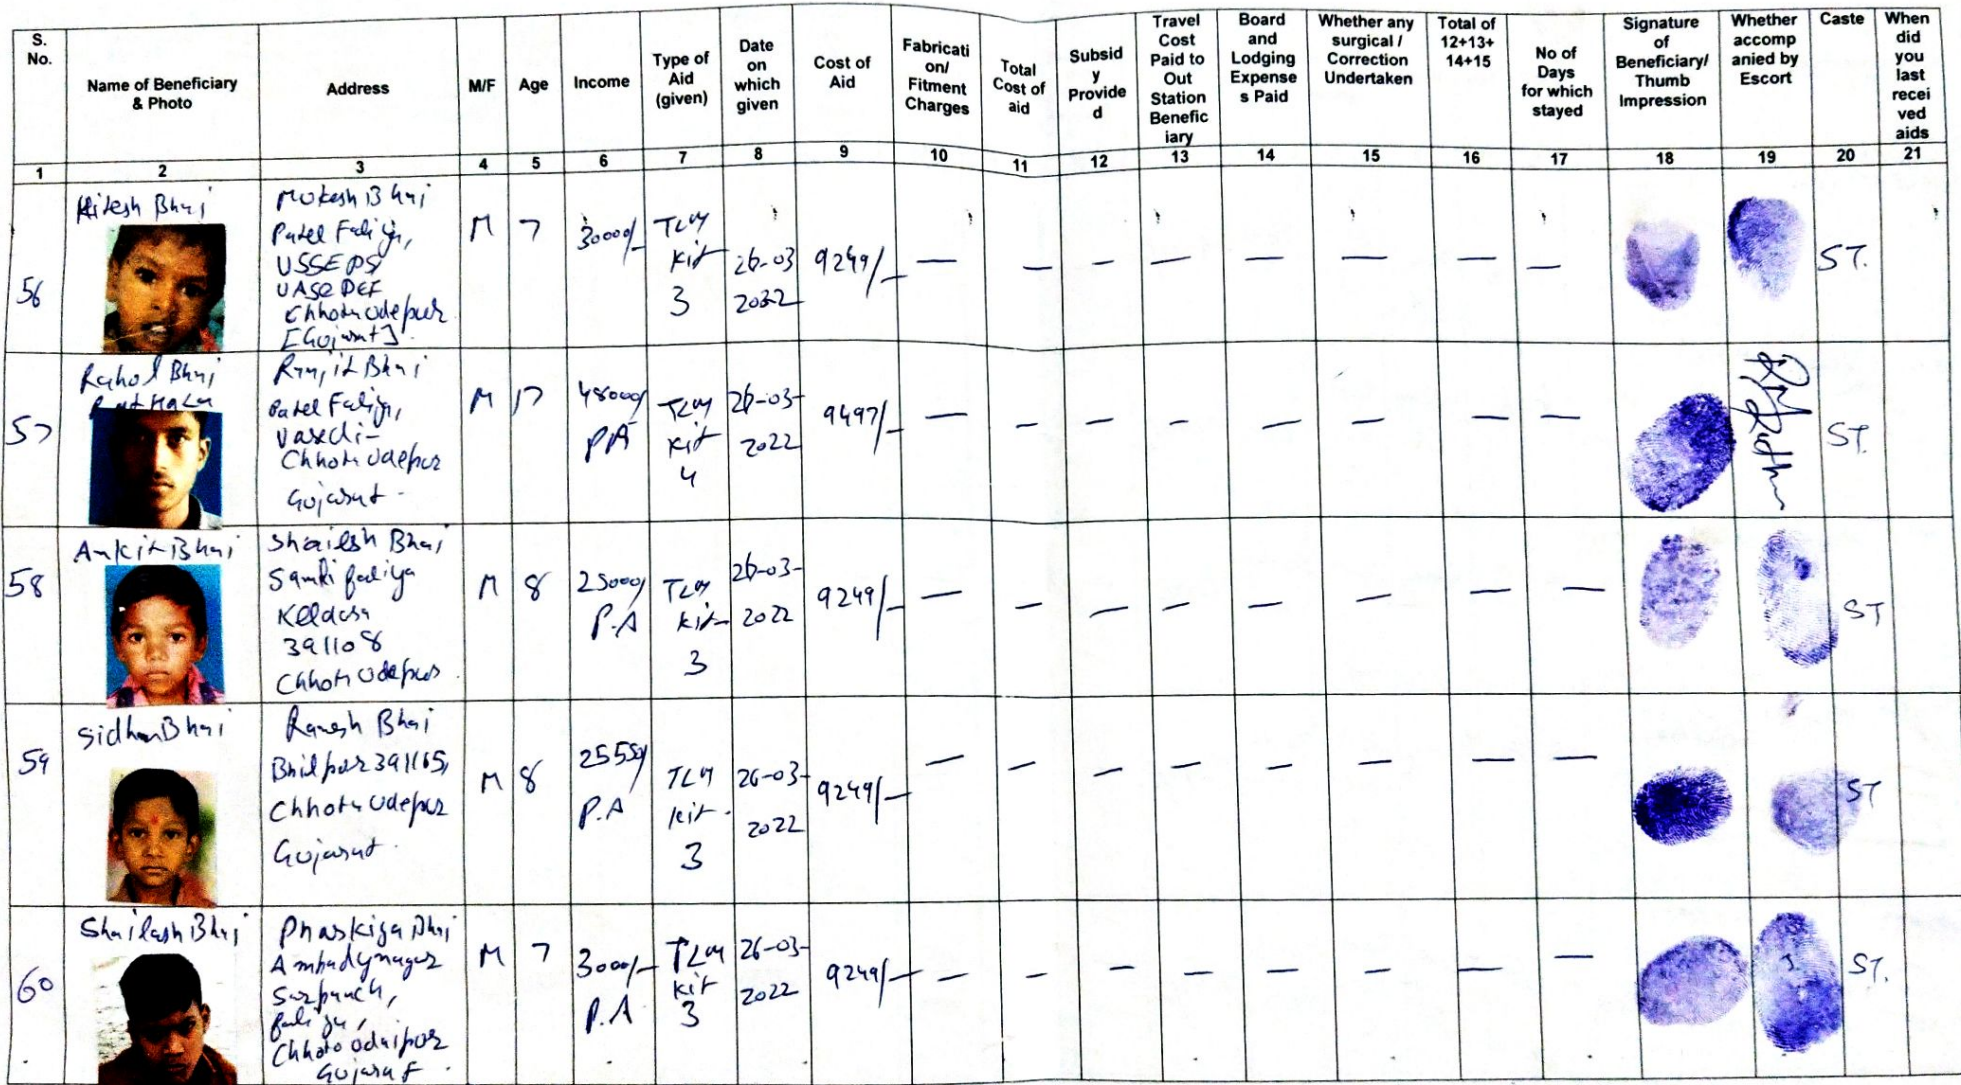 S. No.
Name of Beneficiary & Photo
Address
M/F
Age
Income
Type of Aid (given)
Date on which given
Cost of Aid
Fabricati on/ Fitment Charges
Total Cost of aid
Subsid y Provide d
Travel Cost Paid to Out Station Benefic iary
Board and Lodging Expense s Paid
Whether any surgical / Correction Undertaken
Total of 12+13+ 14+15
No of Days for which stayed
Signature of Beneficiary/ Thumb Impression
Whether accomp anied by Escort
Caste
When did you last recei ved aids
1 2 3 4 5 6 7 8 9 10 11 12 13 14 15 16 17 18 19 20 21
56
Hitesh Bhai
Mukesh Bhai
Patel Faliya,
Chhota Udepur
[Gujarat].
M
7
30000/-
TLM
Kit
3
26-03
2022
9249/-
— — — — — — — —
ST.
57
Rahul Bhai
Ranjit Bhai
Patel Faliya,
Vasedi-
Chhota Udepur
Gujarat -
M
17
48000/
PA
TLM
Kit
4
26-03-
2022
9497/-
— — — — — — — —
ST.
58
Ankit Bhai
Shailesh Bhai
faliya
391108
Chhota Udepur
M
8
25000/
P.A
TLM
Kit-
3
26-03-
2022
9249/-
— — — — — — — —
ST
59
Sidhan Bhai
Ramesh Bhai
Bhilpur 391165,
Chhota Udepur
Gujarat.
M
8
P.A
TLM
kit.
3
26-03-
2022
9249/-
— — — — — — — —
ST
60
Shailesh Bhai
Sarpanch,
faliya,
Chhota Udaipur
Gujarat
M
7
P.A
TLM
kit
3
26-03-
2022
9249/-
— — — — — — — —
ST.